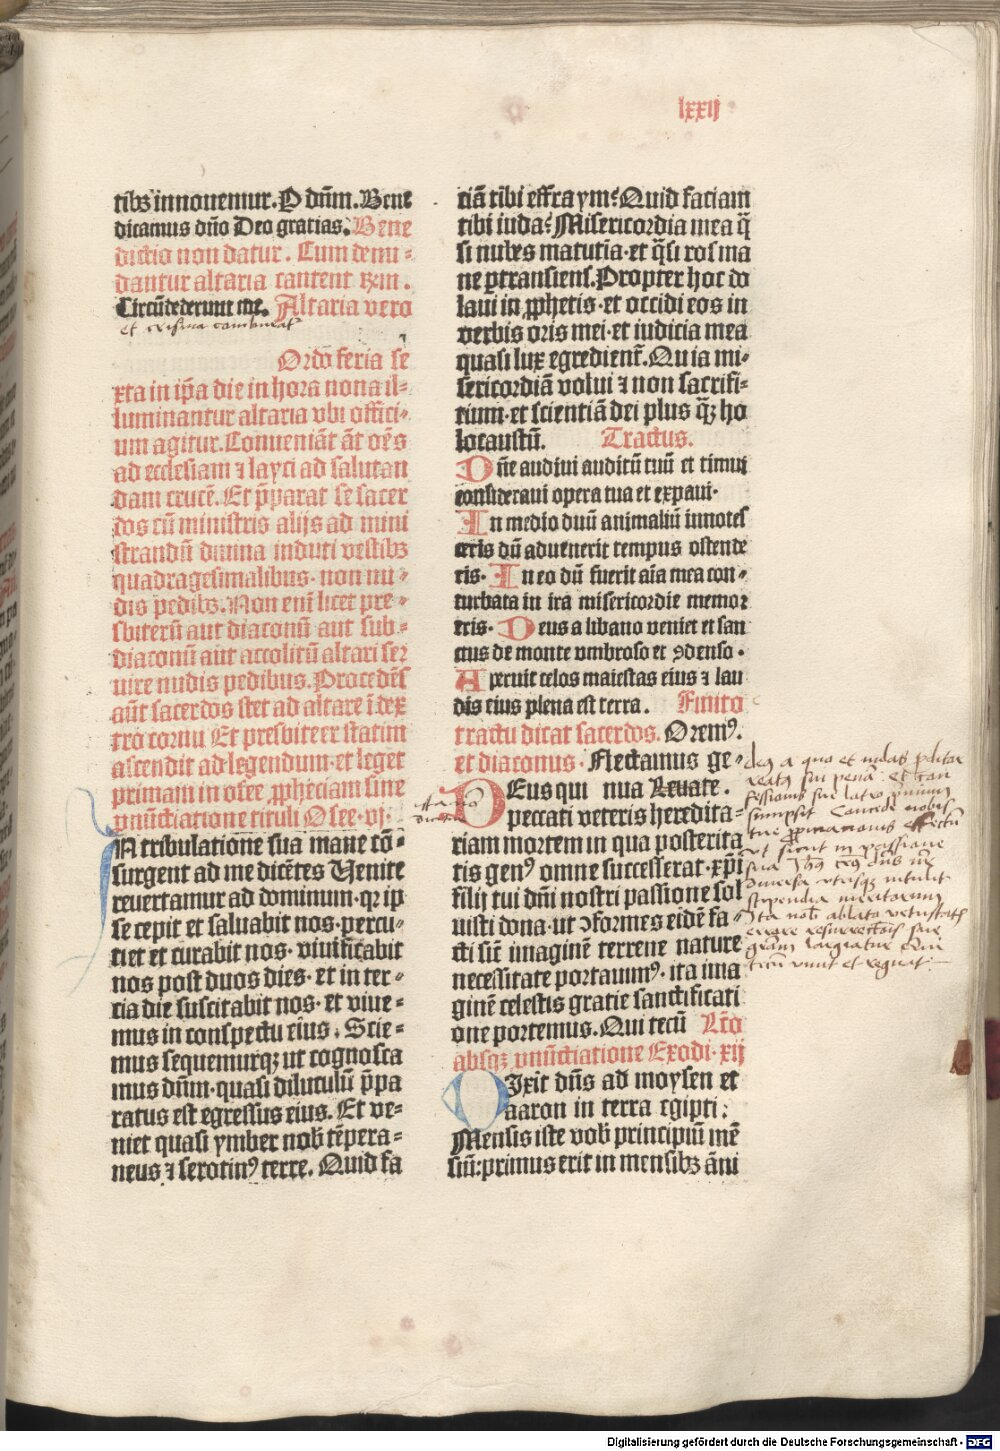 lxxij
tibꝫ innouemur. P dñm. Bene
dicamus dño Deo gratias. Bene
dictio non datur. Cum denu⸗
dantur altaria cantent rꝝm.
Circũdederunt me. Altaria vero
et crisma
Ordo feria se
xta in ip̃a die in hora nona il⸗
luminantur altaria vbi offici⸗
um agitur. Conueniãt ãt oẽs
ad ecclesiam ⁊ layci ad salutan
dam crucẽ. Et p̃parat se sacer
dos cũ ministris alijs ad mini
strandũ diuina induti vestibꝫ
quadragesimalibus. non nu⸗
dis pedibꝫ. Non eni licet pre⸗
sbiterũ aut diaconũ aut sub⸗
diaconũ aut accolitũ altari ser
uire nudis pedibus. Procedẽs
aũt sacerdos stet ad altare ĩ dex
tro cornu Et presbiteer statim
ascendit ad legendum. et leget
primam in osee ꝓpheciam sine
ꝓnũctiatione tituli Osee. vj.
IN tribulatione sua mane cõ⸗
surgent ad me dicẽtes Venite
reuertamur ad dominum. qꝛ ip
se cepit et saluabit nos. percu⸗
tiet et curabit nos. viuificabit
nos post duos dies. et in ter⸗
cia die suscitabit nos. et viue⸗
mus in conspectu eius. Scie⸗
mus sequemurqꝫ ut cognosca
mus dñm. quasi diluculũ p̃pa
ratus est egressus eius. Et ve⸗
niet quasi ymber nob̃ tẽpera⸗
neus ⁊ serotinꝰ terre. Quid fa
ciã tibi effraym? Quid faciam
tibi iuda? Misericordia mea q̃
si nubes matutĩa. et q̃si ros ma
ne ꝑtransiens. Propter hoc do
laui in ꝓphetis. et occidi eos in
verbis oris mei. et iudicia mea
quasi lux egredient̃. Quia mi⸗
sericordiã volui ⁊ non sacrifi⸗
cium. et scientiã dei plus q̃ꝫ ho
locaustũ. Tractus.
Dñe audiui auditũ tuũ et timui
consideraui opera tua et expaui.
In medio duũ animaliũ innotes
ceris dũ aduenerit tempus ostende
ris. In eo dũ fuerit aĩa mea con⸗
turbata in ira misericordie memor
eris. Deus a libano veniet et san
ctus de monte vmbroso et ꝯdenso.
Aperuit celos maiestas eius ⁊ lau
dis eius plena est terra. Finito
tractu dicat sacerdos. Oremꝰ.
et diaconus. Flectamus ge⸗
nua Leuate.
DEus qui
peccati veteris heredita⸗
riam mortem in qua posterita
tis genꝰ omne successerat. xp̃i
filij tui dñi nostri passione sol
uisti dona. ut ꝯformes eidẽ fa⸗
cti sic̃ imaginẽ terrene nature
necessitate portauimꝰ. ita ima
ginẽ celestis gratie sanctificati
one portemus. Qui tecũ Lc̃o
absqꝫ ꝓnũctiatione Exodi. xij
DIxit dñs ad moysen et
aaron in terra egipti:
Mensis iste vob̃ principiũ mẽ
siũ: primus erit in mensibꝫ ãni
deꝰ a quo et iudas
reatꝰ sui penã. et con
fessionis sue latro premium
sumpsit Concede nobis
tue effectũ
ut sicut in passione
sua
diuersa utrisqꝫ intulit
stipendia meritorum
Ita nob̃ ablato vetustatis
errore resurrectiõis sue
grãm largiatur Qui
tecũ viuit et regnat.
Digitalisierung gefördert durch die Deutsche Forschungsgemeinschaft - DFG